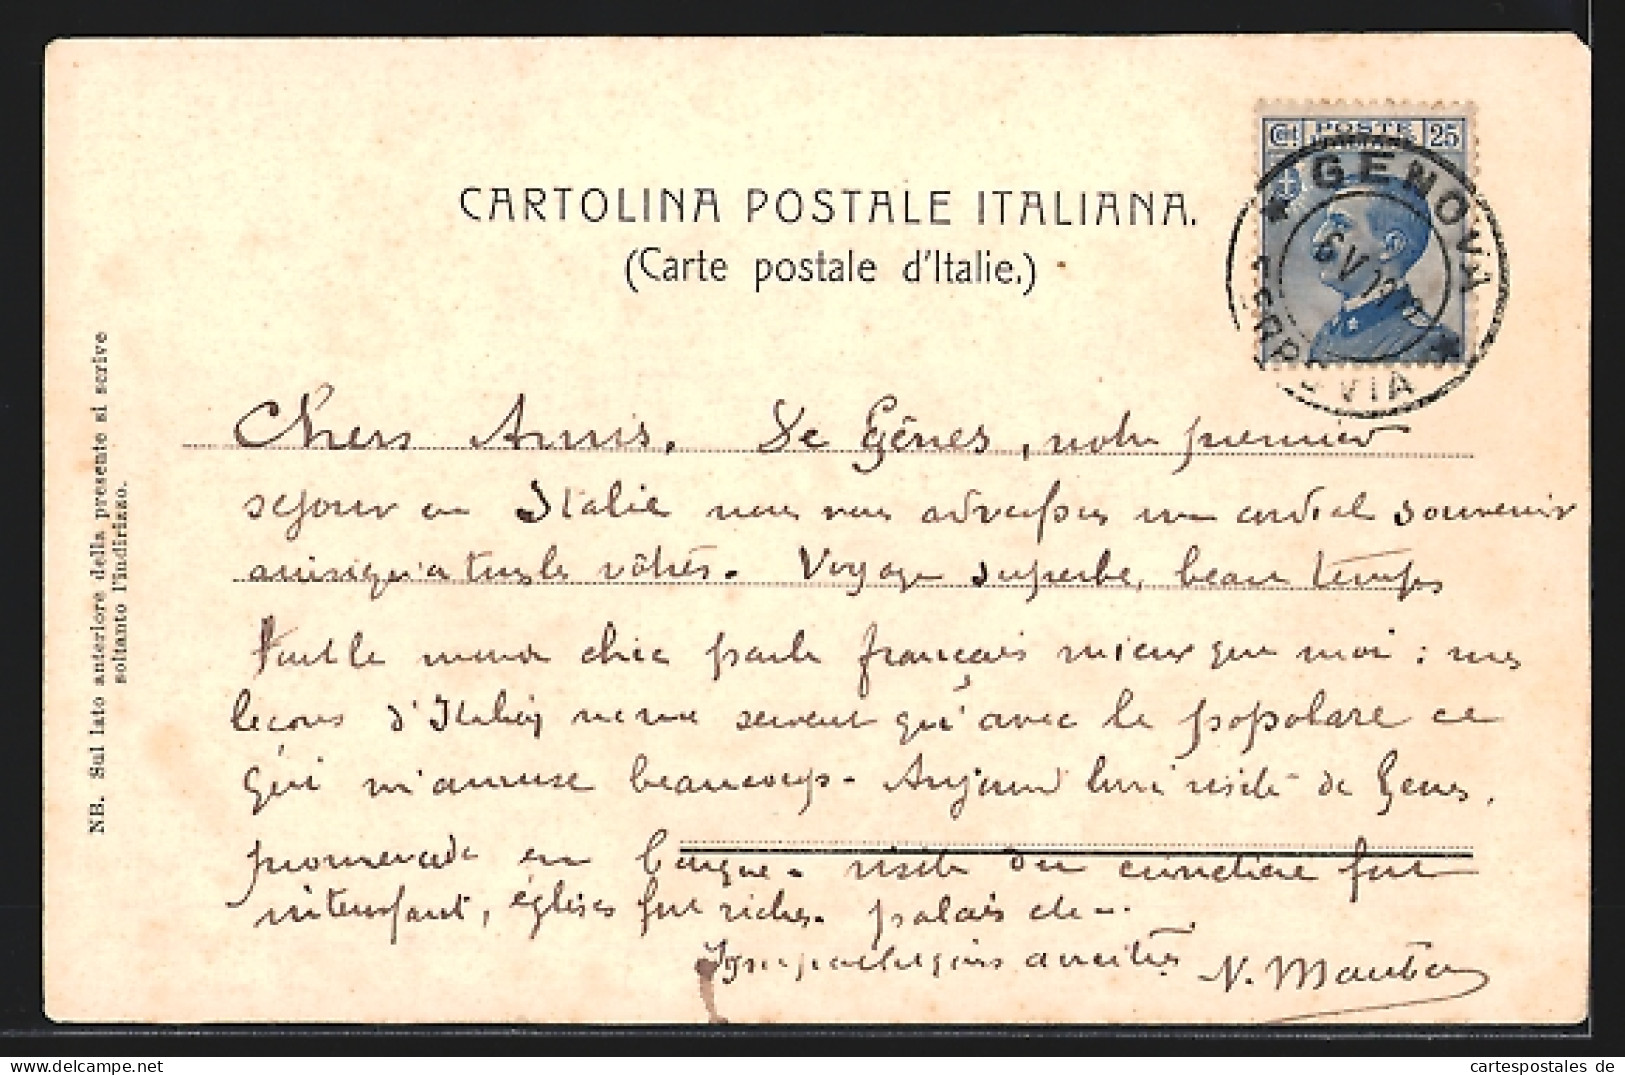 Ct POSTE ITALIANE 25
GENOVA
FERROVIA
CARTOLINA POSTALE ITALIANA.
(Carte postale d'Italie.)
NB. Sul lato anteriore della presente si scrive
soltanto l'indirizzo.
Chers Amis. De Gênes, notre premier
séjour en Italie nous vous un cordial souvenir
vôtres. Voyage superbe, beau temps
chic parle français mieux que moi : mes
leçons d'Italien ne me servent qu'avec le popolare ce
qui m'amuse beaucoup. Aujourd'hui visite de Gênes,
promenade en barque. visite du cimetière fut
intéressant, églises fort riches. palais etc...
amitiés N.
cartespostales de